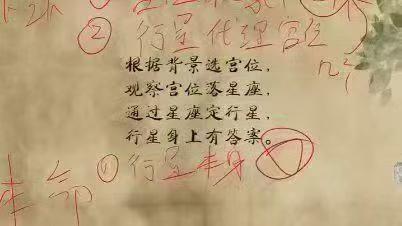 ②行星代理宫位
根据背景选宫位，
观察宫位落星座，
通过星座定行星，
行星身上有答案。
①行星本身
命